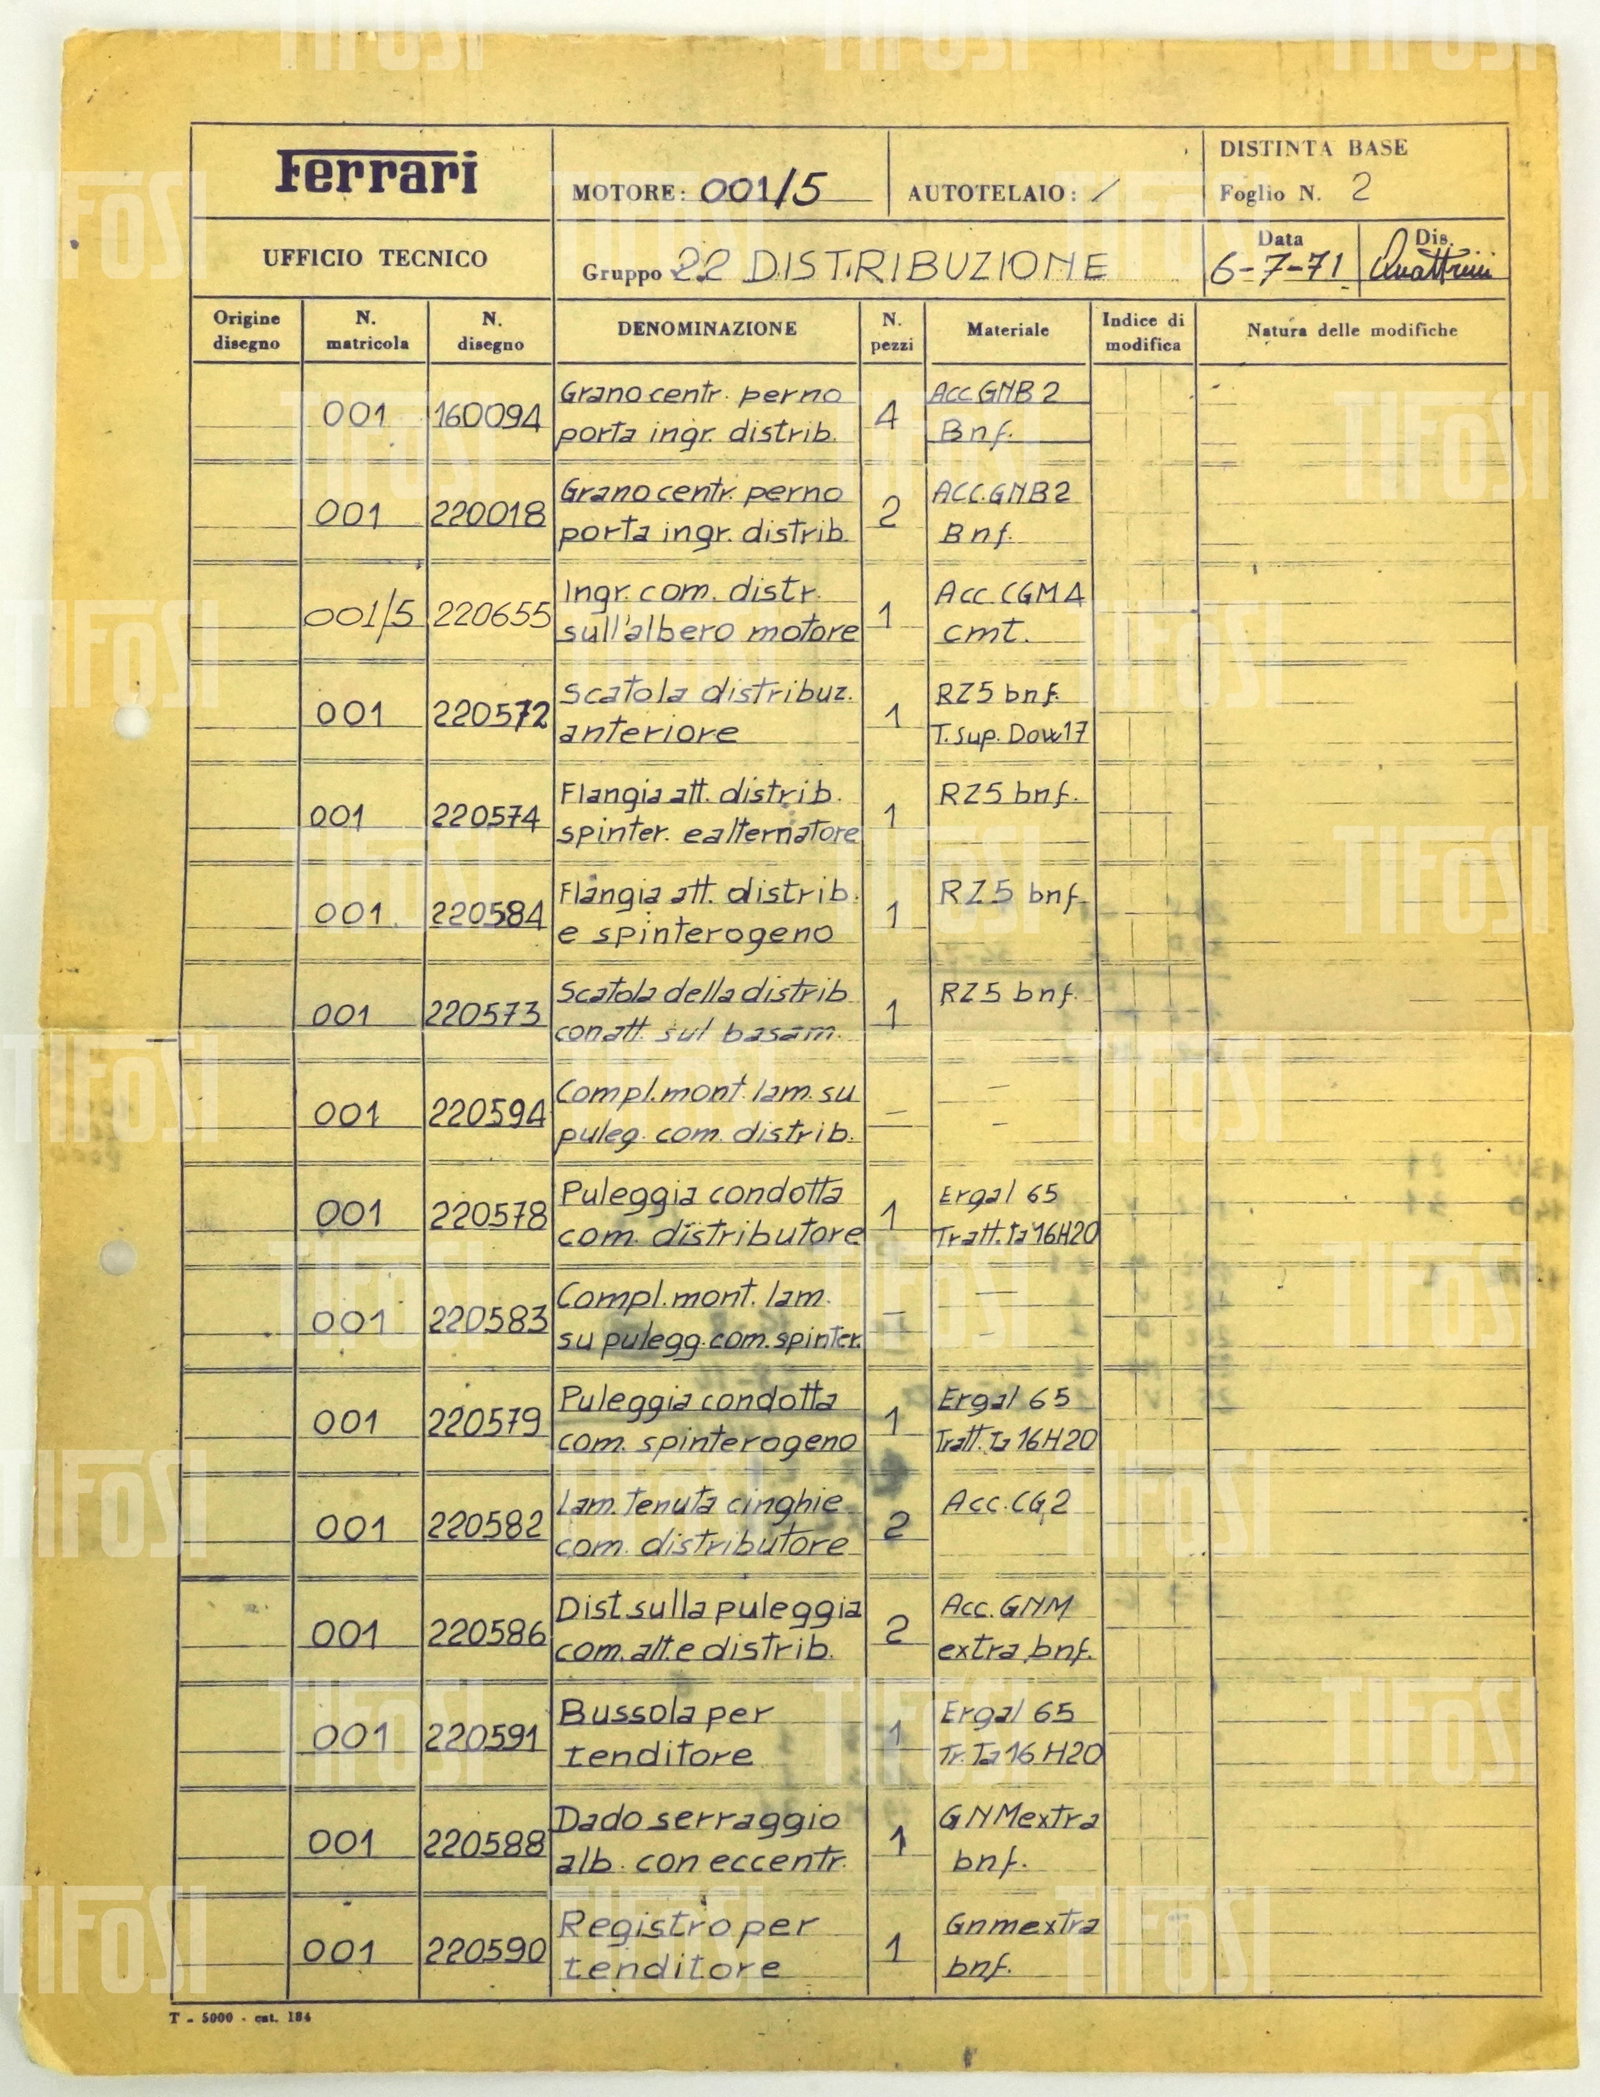 Ferrari
MOTORE: 001/5
AUTOTELAIO: /
DISTINTA BASE
Foglio N. 2
UFFICIO TECNICO
Gruppo 22 DISTRIBUZIONE
Data
6-7-71
Dis.
Quattrini
Origine disegno
N. matricola
N. disegno
DENOMINAZIONE
N. pezzi
Materiale
Indice di modifica
Natura delle modifiche
001 160094 Grano centr. perno 4 Acc GNB 2
porta ingr. distrib. Bnf.
001 220018 Grano centr. perno 2 ACC.GNB2
porta ingr. distrib Bnf.
001/5 220655 Ingr. com. distr. 1 Acc CGM4
sull'albero motore cmt.
001 220572 Scatola distribuz. 1 RZ5 bnf.
anteriore T.sup. Dow17
001 220574 Flangia att. distrib. 1 RZ5 bnf.
spinter. e alternatore
001 220584 Flangia att. distrib. 1 RZ5 bnf.
e spinterogeno
001 220573 Scatola della distrib 1 RZ5 bnf.
con att. sul basam.
001 220594 Compl. mont. lam. su — —
puleg. com. distrib. —
001 220578 Puleggia condotta 1 Ergal 65
com. distributore Tratt. Ta 16H20
001 220583 Compl. mont. lam. — —
su pulegg. com. spinter. —
001 220579 Puleggia condotta 1 Ergal 65
com. spinterogeno Tratt. Ta 16H20
001 220582 Lam. tenuta cinghie 2 Acc. CG2
com. distributore
001 220586 Dist. sulla puleggia 2 Acc. GNM
com. alt. e distrib. extra bnf.
001 220591 Bussola per 1 Ergal 65
tenditore Tr. Ta 16 H20
001 220588 Dado serraggio 1 GNMextra
alb. con eccentr. bnf.
001 220590 Registro per 1 Gnmextra
tenditore bnf.
T - 5000 - cat. 184
TIFOSI